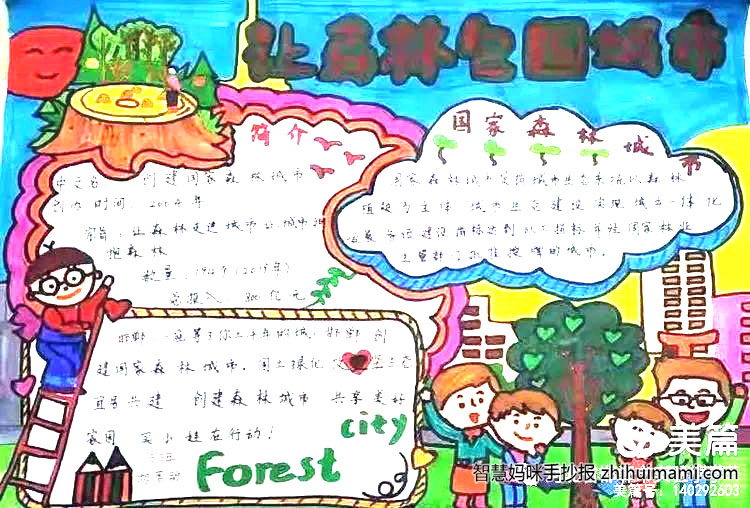 让森林包围城市
简介
中文名 创建国家森林城市
时间: 2004年
宗旨: 让森林走进城市 让城市拥
抱森林
数量: 194个 (2019年)
总投入 300亿元
国家森林城市
国家森林城市是指城市生态系统以森林
植被为主体 城市生态建设实现城乡一体化
发展 各项建设指标达到以下指标并经国家林业
主管部门批准授牌的城市.
邯郸 一座等了你三千年的城. 邯郸 创
建国家森林城市. 国土绿化
宜居共建 创建森林城市 共享美好
家园 小娃在行动!
city
Forest
美篇
智慧妈咪手抄报 zhihuimami.com
美篇号: 140292603